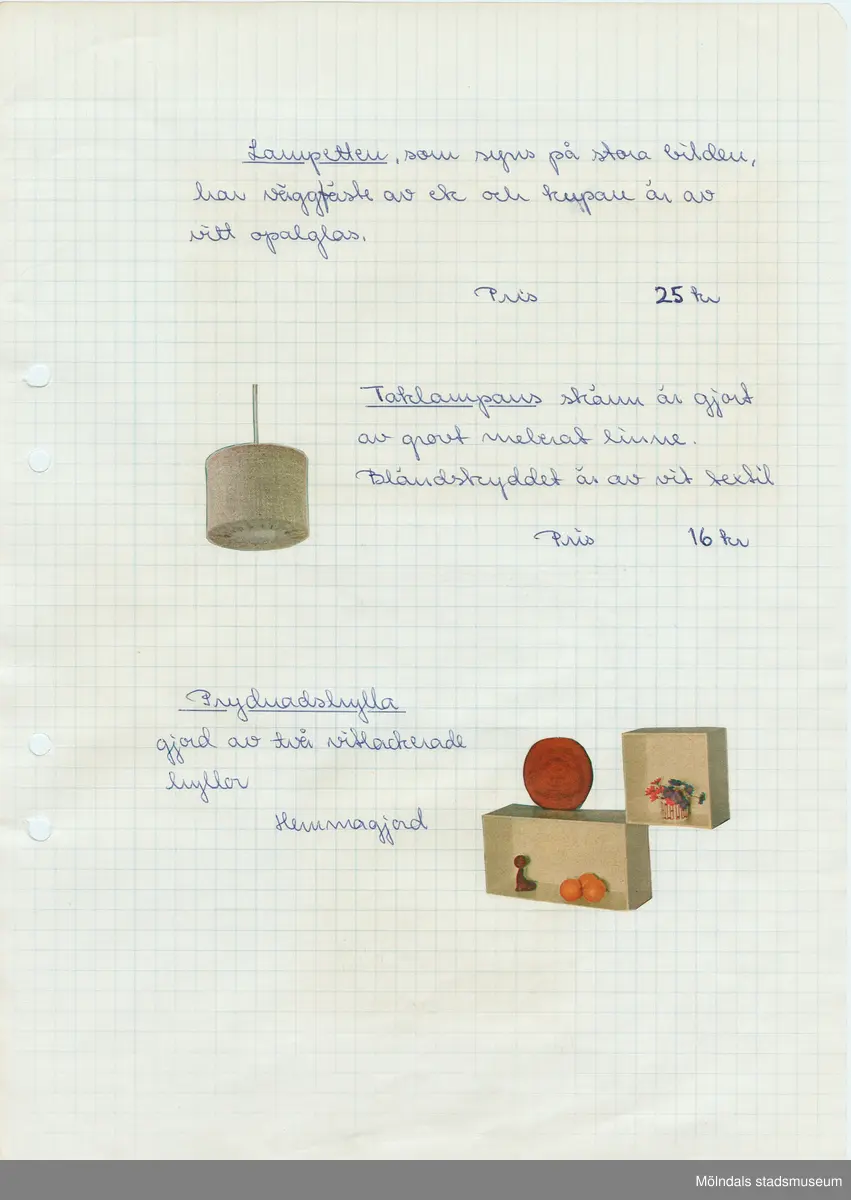 Lampetten, som syns på stora bilden,
har väggfäste av ek och kupan är av
vitt opalglas.
Pris 25 kr
Taklampans skärm är gjort
av grovt melerat linne.
Bländskyddet är av vit textil
Pris 16 kr
Prydnadshylla
gjord av två vitlackerade
hyllor
Hemmagjord
Mölndals stadsmuseum